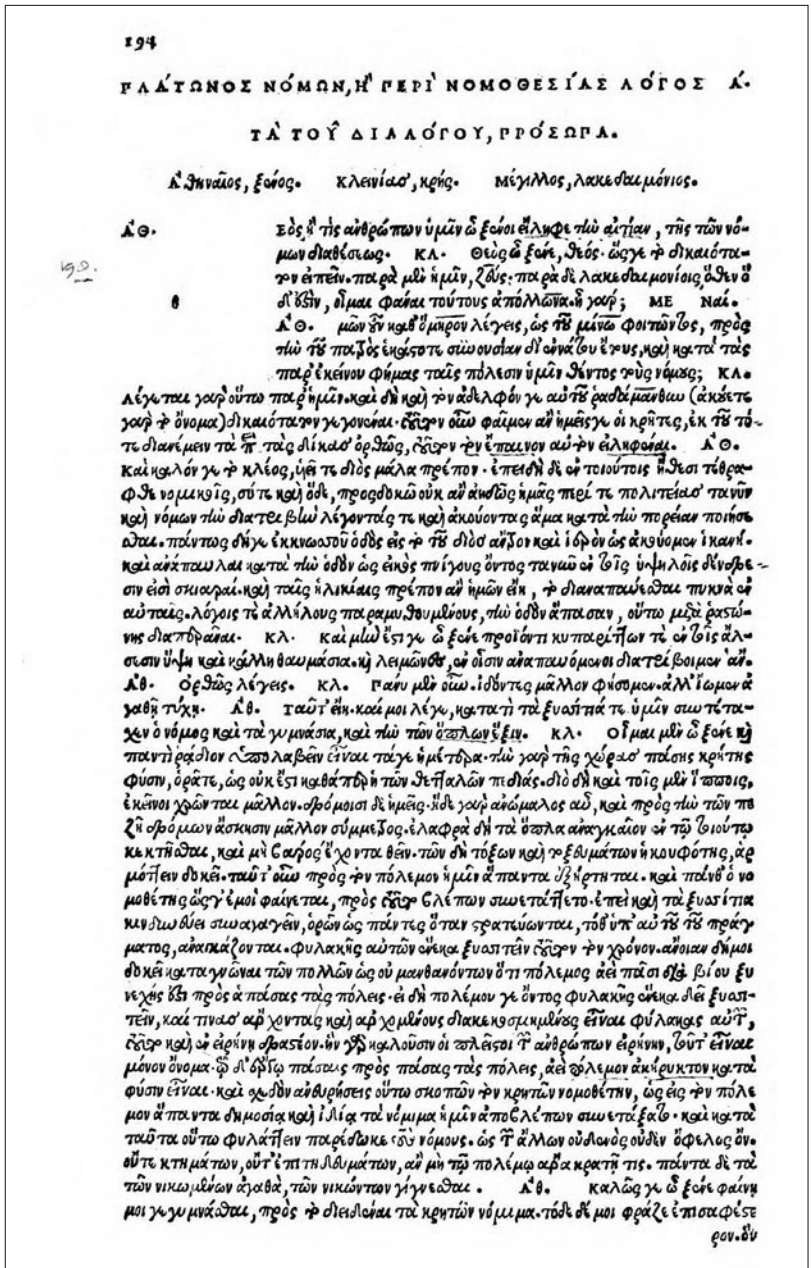 194
ΠΛΆΤΩΝΟΣ ΝΌΜΩΝ, Ἢ ΠΕΡῚ ΝΟΜΟΘΕΣΊΑΣ ΛΌΓΟΣ Ά.
ΤᾺ ΤΟΥ͂ ΔΙΑΛΌΓΟΥ, ΠΡΌΣΩΠΑ.
Ἀθηναῖος, ξένος. Κλεινίας, κρής. Μέγιλλος, λακεδαιμόνιος.
ἈΘ. Εὸς, ἤ τις ἀνθρώπων ὑμῖν ὦ ξένοι εἴληφε τὴν αἰτίαν, τῆς τῶν νό-
μων διαθέσεως. ΚΛ. Θεὸς ὦ ξένε, θεός· ὥς γε τὸ δικαιότα-
τον εἰπεῖν. παρὰ μὲν ἡμῖν, ζεύς· παρὰ δὲ λακεδαιμονίοις, ὅθεν ὅ
θ δ' ἐστὶν, οἶμαι φάναι τούτους ἀπόλλωνα. ἦ γάρ; ΜΕ Ναί.
ἈΘ. μῶν οὖν καθ' ὅμηρον λέγεις, ὡς τοῦ μίνω φοιτῶντος, πρὸς
τὴν τοῦ πατρὸς ἑκάστοτε συνουσίαν δι' ἐννάτου ἔτους, καὶ κατὰ τὰς
παρ' ἐκείνου φήμας ταῖς πόλεσιν ὑμῖν θέντος τοὺς νόμους; ΚΛ.
Λέγεται γὰρ οὕτω παρ' ἡμῖν. καὶ δὴ καὶ τὸν ἀδελφόν γε αὐτοῦ ῥαδάμανθυν (ἀκούετε
γὰρ τὸ ὄνομα) δικαιότατον γεγονέναι. τοῦτον οὖν φαῖμεν ἂν ἡμεῖς γε οἱ κρῆτες, ἐκ τοῦ τό-
τε διανέμειν τὰ περὶ τὰς δίκας ὀρθῶς, τοῦτον τὸν ἔπαινον αὐτὸν εἰληφέναι. ἈΘ.
Καὶ καλόν γε τὸ κλέος, ὑεῖ τε διὸς μάλα πρέπον· ἐπειδὴ δὲ ἐν τοιούτοις ἤθεσι τέθρα-
φθε νομικοῖς, σύ τε καὶ ὅδε, προσδοκῶ οὐκ ἂν ἀηδῶς ἡμᾶς περί τε πολιτείας τανῦν
καὶ νόμων τὴν διατριβὴν λέγοντάς τε καὶ ἀκούοντας ἅμα κατὰ τὴν πορείαν ποιήσε
σθαι. πάντως δή γε ἐκ κνωσοῦ ὁδὸς εἰς τὸ τοῦ διὸς ἄντρον καὶ ἱερὸν ὡς ἀκούομεν ἱκανή.
καὶ ἀνάπαυλαι κατὰ τὴν ὁδὸν ὡς εἰκὸς πνίγους ὄντος τανῦν ἐν τοῖς ὑψηλοῖς δένδρε-
σιν εἰσὶ σκιαραί. καὶ ταῖς ἡλικίαις πρέπον ἂν ἡμῶν εἴη, τὸ διαναπαύεσθαι πυκνὰ ἐν
αὐταῖς. λόγοις τὲ ἀλλήλους παραμυθουμένους, τὴν ὁδὸν ἅπασαν, οὕτω μετὰ ῥαστώ-
νης διαπερᾶναι. ΚΛ. Καὶ μὴν ἔστι γε ὦ ξένε προϊόντι κυπαρίττων τὲ ἐν τοῖς ἄλ-
σεσιν ὕψη καὶ κάλλη θαυμάσια. καὶ λειμῶνες, ἐν οἷσιν ἀναπαυόμενοι διατρίβοιμεν ἄν.
Ἀθ. Ὀρθῶς λέγεις. ΚΛ. Πάνυ μὲν οὖν. ἰδόντες μᾶλλον φήσομεν. ἀλλ' ἴωμεν ἀ
γαθῇ τύχῃ. Ἀθ. Ταῦτ' εἴη. καί μοι λέγε, κατὰ τί τὰ ξυσσίτιά τε ὑμῖν συντέτα-
χεν ὁ νόμος καὶ τὰ γυμνάσια, καὶ τὴν τῶν ὅπλων ἕξιν. ΚΛ. Οἶμαι μὲν ὦ ξένε καὶ
παντὶ ῥᾴδιον ὑπολαβεῖν εἶναι τά γε ἡμέτερα. τὴν γὰρ τῆς χώρας πάσης κρήτης
φύσιν, ὁρᾶτε, ὡς οὐκ ἔστι καθάπερ ἡ τῶν θετταλῶν πεδιάς. διὸ δὴ καὶ τοῖς μὲν ἵπποις,
ἐκεῖνοι χρῶνται μᾶλλον. δρόμοισι δὲ ἡμεῖς· ἥδε γὰρ ἀνώμαλος αὖ, καὶ πρὸς τὴν τῶν πε
ζῇ δρόμων ἄσκησιν μᾶλλον σύμμετρος. ἐλαφρὰ δὴ τὰ ὅπλα ἀναγκαῖον ἐν τῷ τοιούτῳ
κεκτῆσθαι, καὶ μὴ βάρος ἔχοντα θεῖν. τῶν δὴ τόξων καὶ τοξευμάτων ἡ κουφότης, ἁρ
μόττειν δοκεῖ. ταῦτ' οὖν πρὸς τὸν πόλεμον ἡμῖν ἅπαντα ἐξήρτηται. καὶ πάνθ' ὁ νο
μοθέτης ὥς γ' ἐμοὶ φαίνεται, πρὸς τοῦτο βλέπων συνετάττετο. ἐπεὶ καὶ τὰ ξυσσίτια
κινδυνεύει συναγαγεῖν, ὁρῶν ὡς πάντες ὅταν στρατεύωνται, τόθ' ὑπ' αὐτοῦ τοῦ πράγ
ματος, ἀναγκάζονται. φυλακῆς αὐτῶν ἕνεκα ξυσσιτεῖν τοῦτον τὸν χρόνον. ἄνοιαν δή μοι
δοκεῖ καταγνῶναι τῶν πολλῶν ὡς οὐ μανθανόντων ὅτι πόλεμος ἀεὶ πᾶσι διὰ βίου ξυ
νεχής ἐστι πρὸς ἁπάσας τὰς πόλεις· εἰ δὴ πολέμου γε ὄντος φυλακῆς ἕνεκα δεῖ ξυσσι-
τεῖν, καί τινας ἄρχοντας καὶ ἀρχομένους διακεκοσμημένους εἶναι φύλακας αὐτῶν,
τοῦτο καὶ ἐν εἰρήνῃ δραστέον. ἣν γὰρ καλοῦσιν οἱ πλεῖστοι τῶν ἀνθρώπων εἰρήνην, τοῦτ' εἶναι
μόνον ὄνομα· τῷ δ' ἔργῳ πάσαις πρὸς πάσας τὰς πόλεις, ἀεὶ πόλεμον ἀκήρυκτον κατὰ
φύσιν εἶναι· καὶ σχεδὸν ἀνευρήσεις οὕτω σκοπῶν τὸν κρητῶν νομοθέτην, ὡς εἰς τὸν πόλε
μον ἅπαντα δημοσίᾳ καὶ ἰδίᾳ τὰ νόμιμα ἡμῖν ἀποβλέπων συνετάξατο· καὶ κατὰ
ταῦτα οὕτω φυλάττειν παρέδωκε τοὺς νόμους. ὡς τῶν ἄλλων οὐδενὸς οὐδὲν ὄφελος ὄν.
οὔτε κτημάτων, οὔτ' ἐπιτηδευμάτων, ἂν μὴ τῷ πολέμῳ ἄρα κρατῇ τις. πάντα δὲ τὰ
τῶν νικωμένων ἀγαθὰ, τῶν νικώντων γίγνεσθαι. Ἀθ. Καλῶς γε ὦ ξένε φαίνῃ
μοι γεγυμνάσθαι, πρὸς τὸ διειδέναι τὰ κρητῶν νόμιμα. τόδε δέ μοι φράζε ἔτι σαφέστε
ρον. ὃν